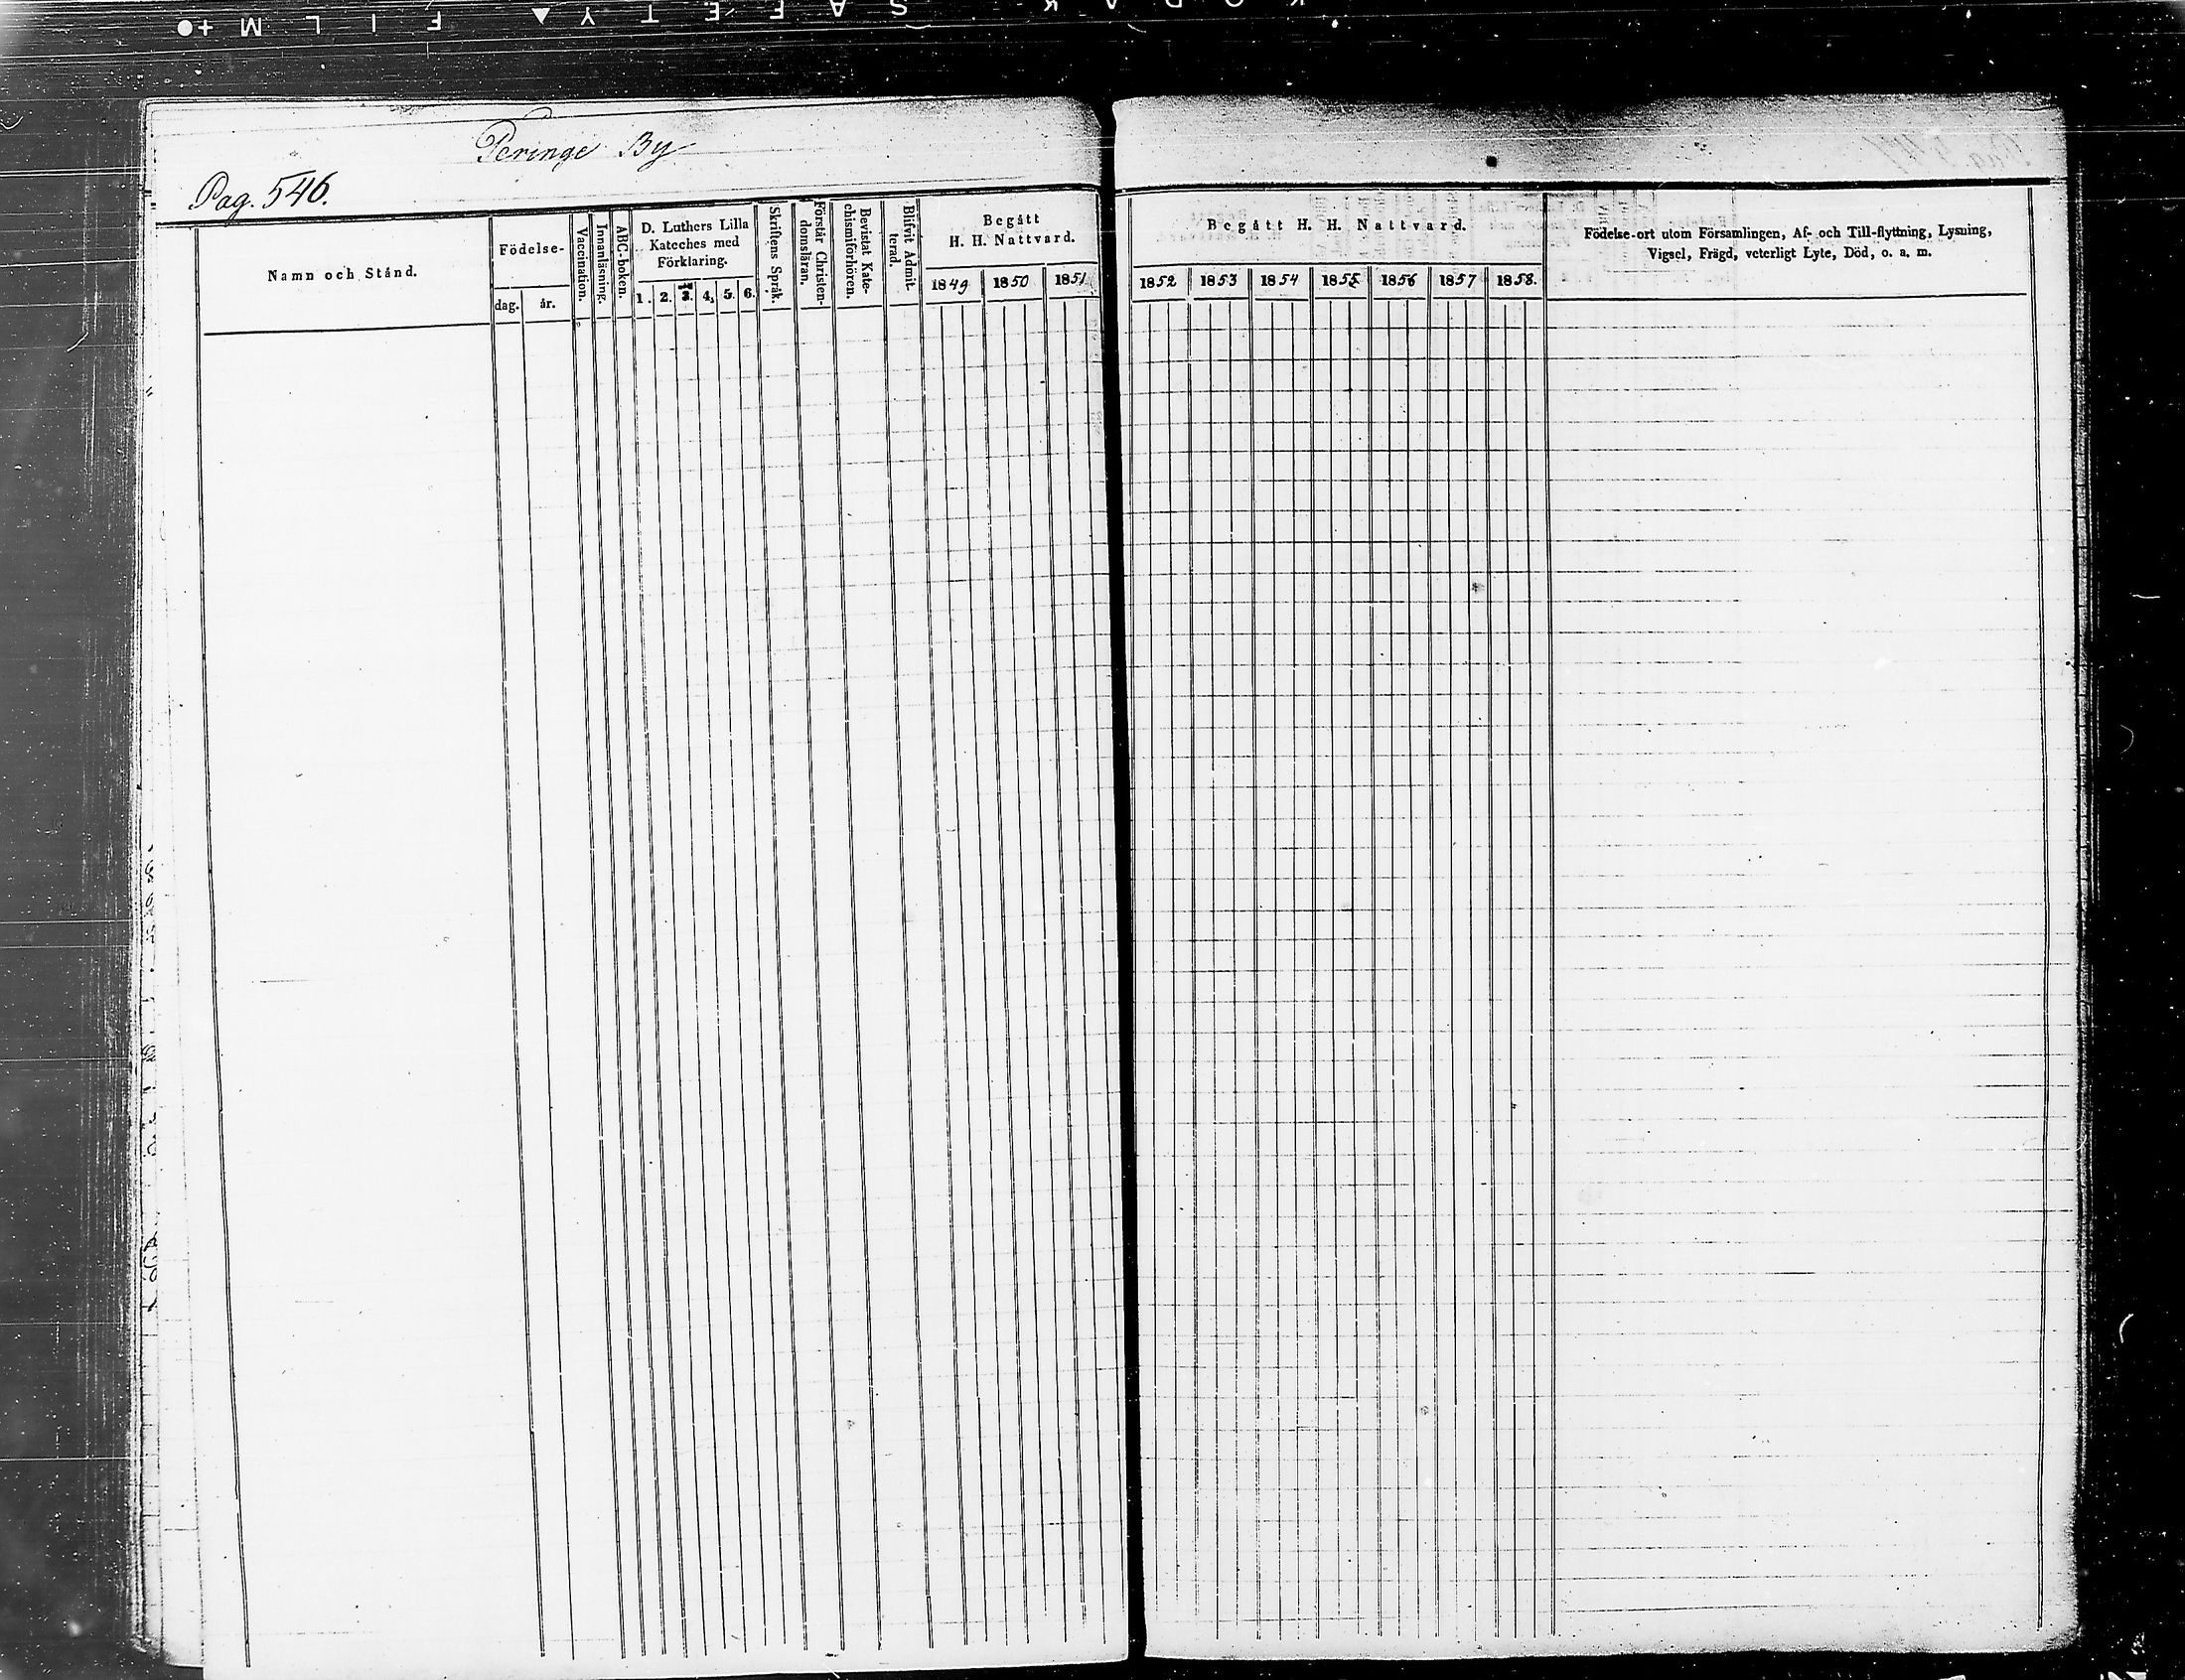 KODAK SAFETY FILM
Peringe By
Pag. 546.
Namn och Stånd.
Födelse-
dag. år.
Vaccination.
Innanläsning.
ABC-boken.
D. Luthers Lilla
Kateches med
Förklaring.
1. 2. 3. 4. 5. 6.
Skriftens Språk.
Förstår Christen-
domsläran.
Bevistat Kate-
chismiförhören.
Blifvit Admit-
terad.
Begått
H. H. Nattvard.
1849 1850 1851
Begått H. H. Nattvard.
1852 1853 1854 1855 1856 1857 1858.
Födelse-ort utom Församlingen, Af- och Till-flyttning, Lysning,
Vigsel, Frägd, veterligt Lyte, Död, o. a. m.